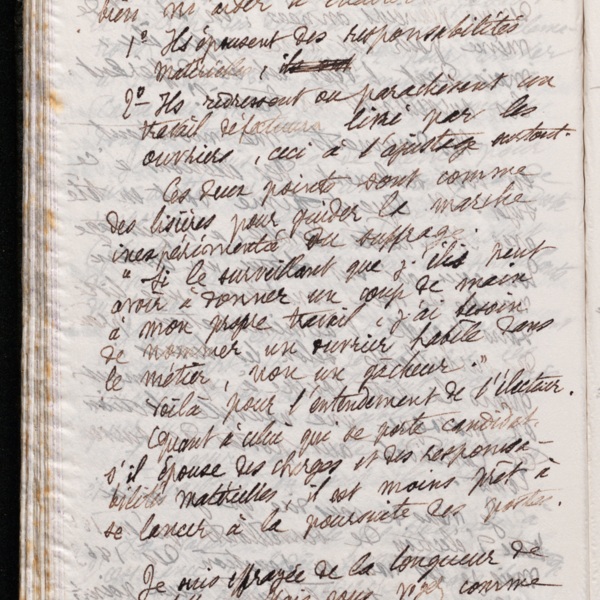 bien ni aider à
1° Ils épousent des responsabilités
matérielles,
2° Ils redressent ou parachèvent un
travail défectueux livré par les
ouvriers, ceci à l'ajustage surtout.
Ces deux points sont comme
des lisières pour guider la marche
inexpérimentée du suffrage.
" Si le surveillant que j'élis peut
avoir à donner un coup de main
à mon propre travail, j'ai besoin
de nommer un ouvrier habile dans
le métier, non un gacheur."
Voilà pour l'entendement de l'électeur.
Quant à celui qui se porte candidat,
s'il épouse des charges et des responsa-
bilités matérielles, il est moins prêt à
se lancer à la poursuite des postes.
Je suis effrayée de la longueur de
vous comme